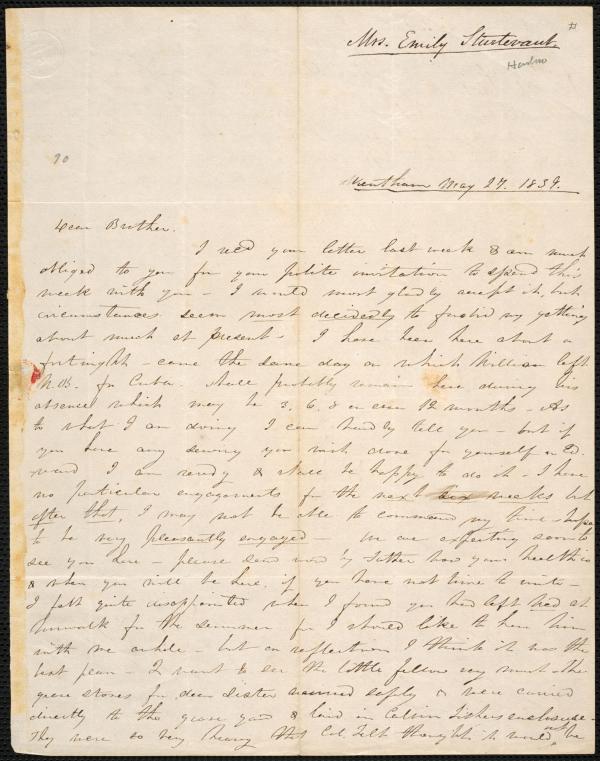 Mrs. Emily Sturtevant.
90
Wrentham May 27. 1839.
Dear Brother.
I recd your letter last week & am much
obliged to you for your polite invitation to spend this
week with you - I would most gladly accept it, but
circumstances seem most decidedly to forbid my getting
about much at present - I have been here about a
fortnight - came the same day on which William left
N.B. for Cuba. Shall probably remain here during his
absence which may be 3, 6, 8 or even 12 months - As
to what I am doing I can hardly tell you - but if
you have any sewing you wish done for yourself or Ed.
ward I am ready & shall be happy to do it - I have
no particular engagements for the next six weeks but
after that, I may not be able to command my time - hope
to be very pleasantly engaged We are expecting soon to
see you here - please send word by Father how your health is
& when you will be here, if you have not time to write -
I felt quite disappointed when I found you had left Ned at
for the summer for I should like to have him
with me awhile - but on reflection I think it was the
best plan - I want to see the little fellow very much - the
grave stones for dear Sister arrived safely & were carried
directly to the grave yard & laid in Calvin Fishers enclosure -
They were so very heavy that Col. Felt thought it would not be